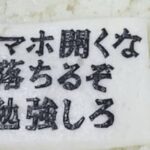 マホ開くな
落ちるぞ
勉強しろ